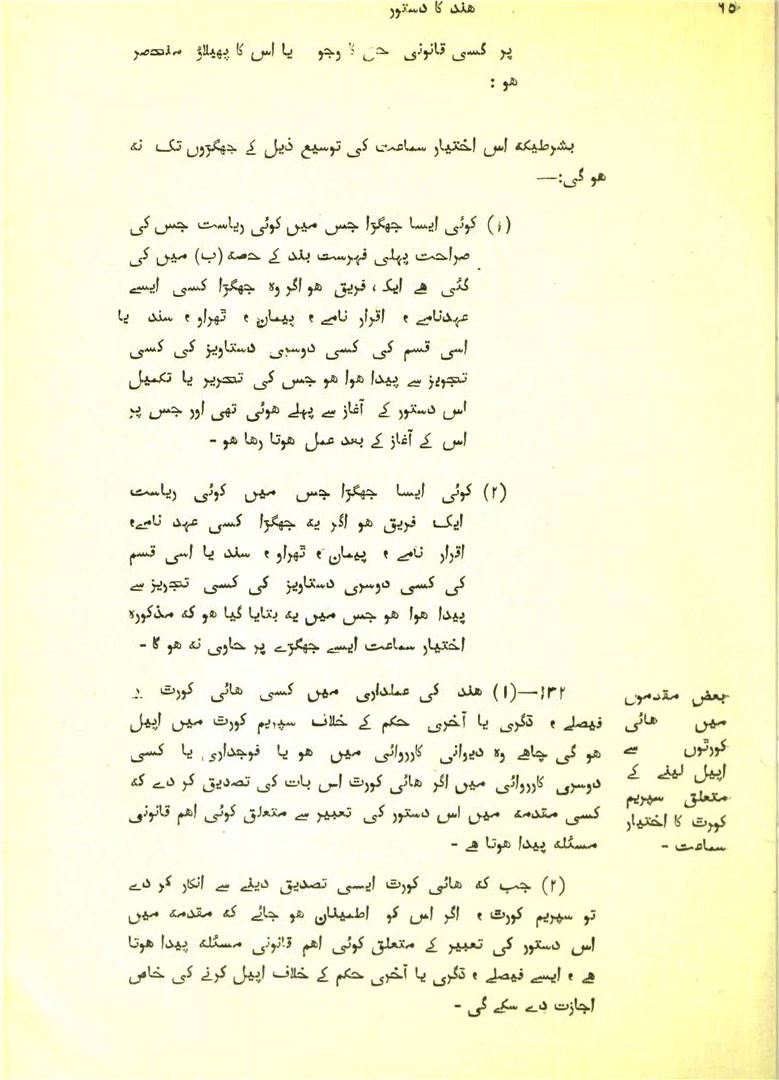 هند کا دستور
٦٥
پر کسی قانونی حق کا وجو یا اس کا پھیلاؤ منحصر
هو :
بشرطیکه اس اختیار سماعت کی توسیع ذیل کے جھگڑوں تک نه
هو گی:—
(١) کوئی ایسا جھگڑا جس میں کوئی ریاست جس کی
صراحت پہلی فہرست بند کے حصه (ب) میں کی
گئی هے ایک، فریق هو اگر وه جھگڑا کسی ایسے
عہدنامے ، اقرار نامے ، پیمان ، ٹھراو ، سند یا
اسی قسم کی کسی دوسری دستاویز کی کسی
تجویز سے پیدا هوا هو جس کی تحریر یا تکمیل
اس دستور کے آغاز سے پہلے هوئی تھی اور جس پر
اس کے آغاز کے بعد عمل هوتا رها هو -
(٢) کوئی ایسا جھگڑا جس میں کوئی ریاست
ایک فریق هو اگر یه جھگڑا کسی عہد نامے،
اقرار نامے ، پیمان ، ٹھراو ، سند یا اسی قسم
کی کسی دوسری دستاویز کی کسی تجریز سے
پیدا هوا هو جس میں یه بتایا گیا هو که مذکوره
اختیار سماعت ایسے جھگڑے پر حاوی نه هو گا -
بعض مقدموں
میں هائی
کورٹوں سے
اپیل لینے کے
متعلق سپریم
کورٹ کا اختیار
سماعت -
١٣٢—(١) هند کی عملداری میں کسی هائی کورٹ
فیصلے ، ڈگری یا آخری حکم کے خلاف سپریم کورٹ میں اپیل
هو گی چاهے وه دیوانی کارروائی میں هو یا فوجداری یا کسی
دوسری کارروائی میں اگر هائی کورٹ اس بات کی تصدیق کر دے که
کسی مقدمه میں اس دستور کی تعبیر سے متعلق کوئی اهم قانونی
مسئله پیدا هوتا هے -
(٢) جب که هائی کورٹ ایسی تصدیق دینے سے انکار کر دے
تو سپریم کورٹ ، اگر اس کو اطمینان هو جائے که مقدمه میں
اس دستور کی تعبیر کے متعلق کوئی اهم قانونی مسئله پیدا هوتا
هے ، ایسے فیصلے ، ڈگری یا آخری حکم کے خلاف اپیل کرنے کی خاص
اجازت دے سکے گی -